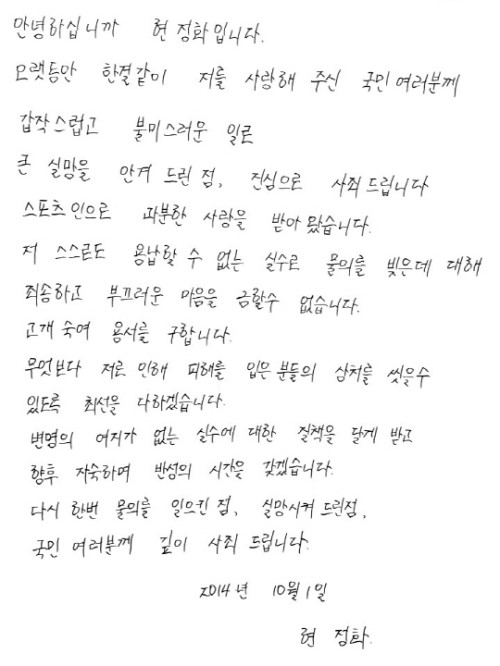 안녕하십니까 현정화입니다.
오랫동안 한결같이 저를 사랑해 주신 국민여러분께
갑작스럽고 불미스러운 일로
큰 실망을 안겨 드린 점, 진심으로 사죄드립니다
스포츠인으로 과분한 사랑을 받아 왔습니다.
저 스스로도 용납할 수 없는 실수로 물의를 빚은데 대해
죄송하고 부끄러운 마음을 금할수 없습니다.
고개 숙여 용서를 구합니다.
무엇보다 저로 인해 피해를 입은 분들의 상처를 씻을수
있도록 최선을 다하겠습니다.
변명의 여지가 없는 실수에 대한 질책을 달게 받고
향후 자숙하며 반성의 시간을 갖겠습니다.
다시 한번 물의를 일으킨 점, 실망시켜 드린점,
국민 여러분께 깊이 사죄 드립니다.
2014년 10월 1일
현 정화.